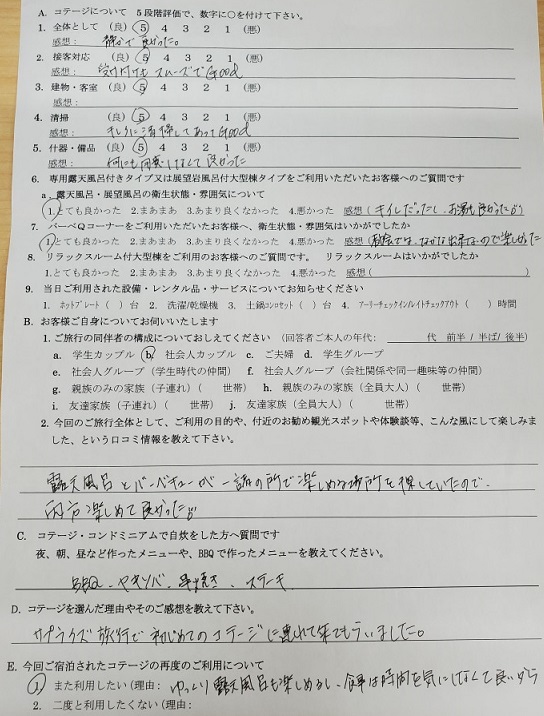 A. コテージについて 5段階評価で、数字に○を付けて下さい。
1. 全体として (良) 5 4 3 2 1 (悪)
感想: 静かで良かった。
2. 接客対応 (良) 5 4 3 2 1 (悪)
感想: 受け付けも スムーズで Good
3. 建物・客室 (良) 5 4 3 2 1 (悪)
感想:
4. 清掃 (良) 5 4 3 2 1 (悪)
感想: キレイに清掃してあってGood
5. 什器・備品 (良) 5 4 3 2 1 (悪)
感想: 何にも問題はなくて良かった
6. 専用露天風呂付きタイプ又は展望岩風呂付大型棟タイプをご利用いただいたお客様へのご質問です
a. 露天風呂・展望風呂の衛生状態・雰囲気について
1.とても良かった 2.まあまあ 3.あまり良くなかった 4.悪かった 感想( キレイだったし、お湯も良かった
7. バーベQコーナーをご利用いただいたお客様へ、衛生状態・雰囲気はいかがでしたか
1.とても良かった 2.まあまあ 3.あまり良くなかった 4.悪かった 感想( 都会では、なかなか出来ないので楽しかった
8. リラックスルーム付大型棟をご利用のお客様へのご質問です。 リラックスルームはいかがでしたか
1.とても良かった 2.まあまあ 3.あまり良くなかった 4.悪かった 感想( )
9. 当日ご利用された設備・レンタル品・サービスについてお知らせください
1. ホットプレート( )台 2. 洗濯/乾燥機 3. 土鍋コンロセット( )台 4. アーリーチェックイン/レイトチェックアウト( )時間
B. お客様ご自身についてお伺いいたします
1. ご旅行の同伴者の構成についておしえてください (回答者ご本人の年代: 代 前半 / 半ば / 後半)
a. 学生カップル b. 社会人カップル c. ご夫婦 d. 学生グループ
e. 社会人グループ(学生時代の仲間) f. 社会人グループ(会社関係や同一趣味等の仲間)
g. 親族のみの家族(子連れ)( 世帯) h. 親族のみの家族(全員大人)( 世帯)
i. 友達家族(子連れ)( 世帯) j. 友達家族(全員大人)( 世帯)
2. 今回のご旅行全体として、ご利用の目的や、付近のお勧め観光スポットや体験談等、こんな風にして楽しみま
した、という口コミ情報を教えて下さい。
露天風呂とバーベキューが一諸の所で楽しめる場所を探していたので、
両方楽しめて良かった
C. コテージ・コンドミニアムで自炊をした方へ質問です
夜、朝、昼など作ったメニューや、BBQで作ったメニューを教えてください。
BBQ、ヤキソバ、串焼き、ステーキ
D. コテージを選んだ理由やそのご感想を教えて下さい。
サプライズ旅行で初じめてのコテージに連れて来てもらいました。
E. 今回ご宿泊されたコテージの再度のご利用について
1. また利用したい(理由: ゆっくり露天風呂も楽しめるし、食事は時間を気にしなくて良いから
2. 二度と利用したくない(理由: